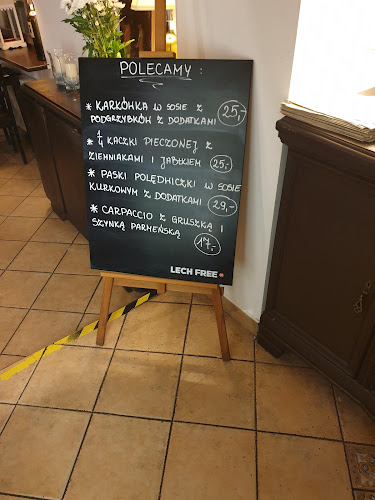 POLECAMY :
* KARKÓWKA W SOSIE Z
PODGRZYBKÓW Z DODATKAMI 25,-
* 1/4 KACZKI PIECZONEJ Z
ZIEMNIAKAMI I JABŁKIEM 25,-
* PASKI POLĘDWICZKI W SOSIE
KURKOWYM Z DODATKAMI 29,-
* CARPACCIO Z GRUSZKĄ I
SZYNKĄ PARMEŃSKĄ 17,-
LECH FREE